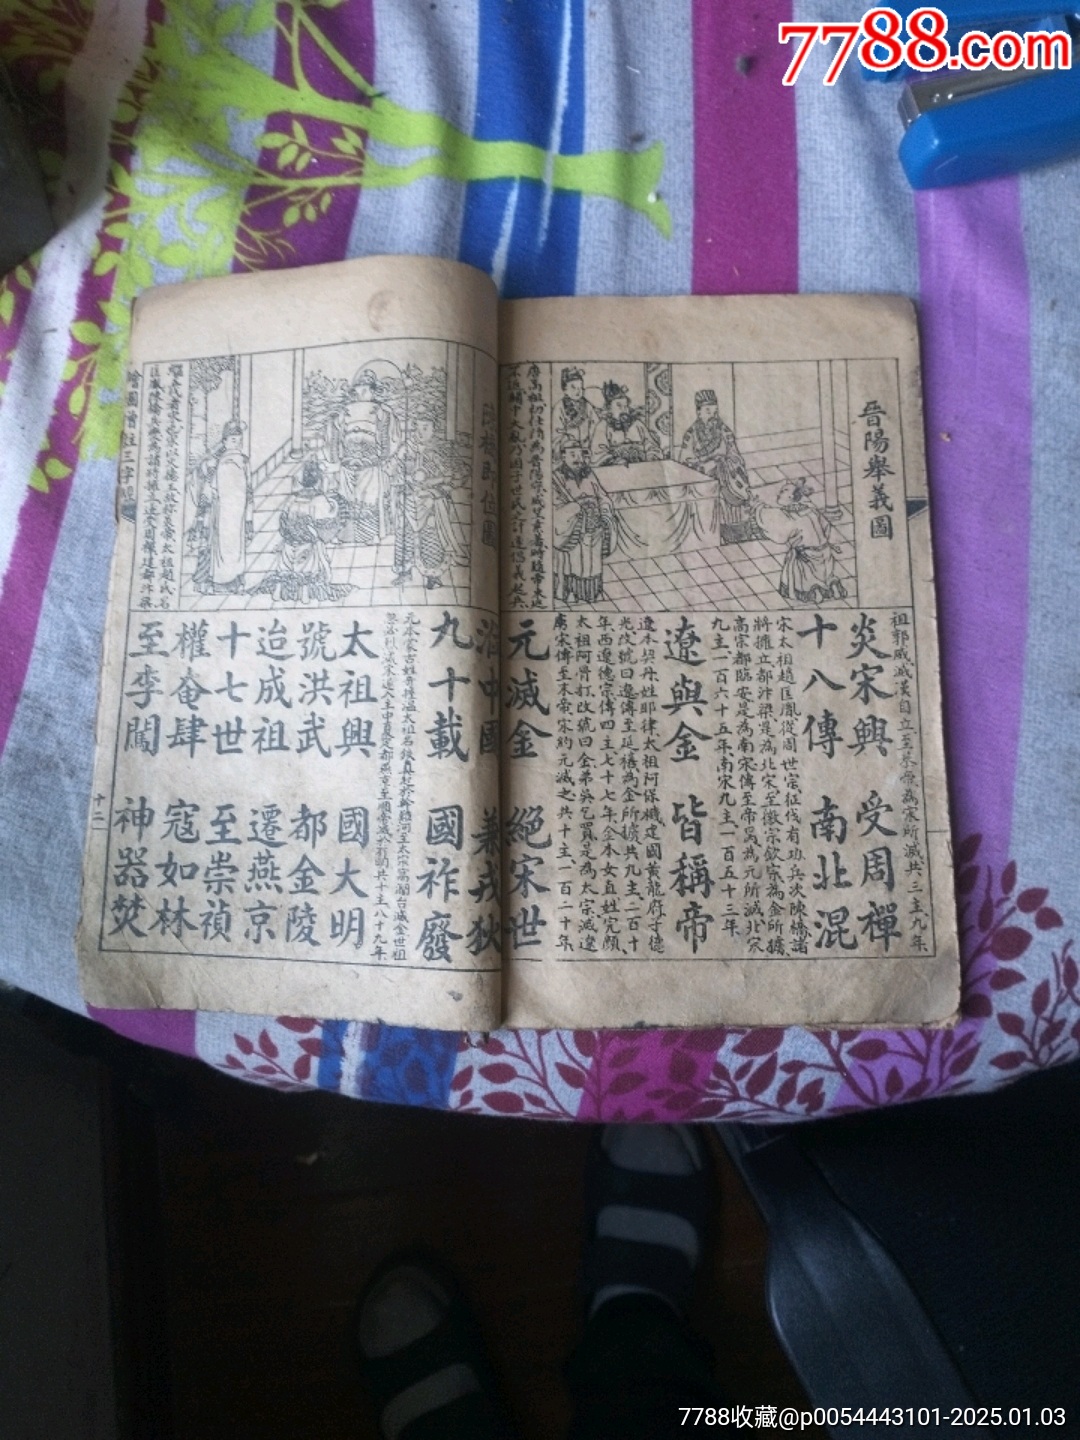 7788.com
晉陽舉義圖
唐高祖初仕隋為晉陽
祖郭威滅漢自立至恭帝為宋所滅共三主九年
炎宋興 受周禪
十八傳 南北混
宋太祖趙匡胤從周世宗征伐有功兵次陳橋諸
將擁立都汴梁是為北宋至徽宗欽宗為金所擄
高宗都臨安是為南宋傳至帝昺為元所滅北宋
九主一百六十五年南宋九主一百五十三年
遼與金 皆稱帝
遼本契丹姓耶律太祖阿保機建國黃龍府子德
光改號曰遼傳至延禧為金所擄共九主二百十
年西遼德宗傳四主七十七年金本女直姓完顏
太祖阿骨打改號曰金弟吳乞買是為太宗滅遼
虜宋傳至末帝宋約元滅之共十主一百二十年
元滅金 絕宋世
涖中國 兼戎狄
九十載 國祚廢
太祖興 國大明
號洪武 都金陵
迨成祖 遷燕京
十七世 至崇禎
權奄肆 寇如林
至李闖 神器焚
繪圖增註三字經
十二
7788收藏@p0054443101-2025.01.03